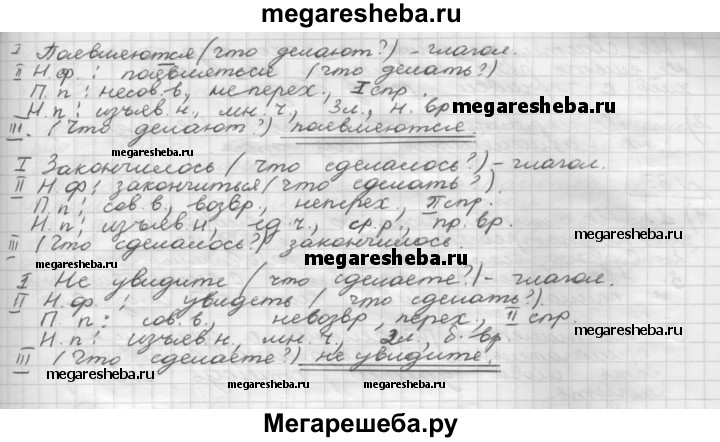 megaresheba.ru
I Появляются (что делают?) - глагол.
II Н.ф.: появляться (что делать?)
П.п: несов.в, неперех., I спр.
Н.п: изъяв.н., мн.ч., 3л., н.вр.
megaresheba.ru
III. (Что делают?) появляются.
megaresheba.ru
megaresheba.ru
I Закончилось (что сделалось?) - глагол.
II Н.ф: закончиться (что сделать?).
П.п: сов.в, возвр., неперех., II спр.
Н.п: изъяв.н, ед.ч., ср.р., пр.вр.
III (Что сделалось?) закончилось.
megaresheba.ru
megaresheba.ru
megaresheba.ru
I Не увидите (что сделаете?) - глагол.
II Н.ф.: увидеть (что сделать?).
П.п: сов.в, невозвр, перех., II спр.
Н.п: изъяв.н., мн.ч., 2л, б.вр.
megaresheba.ru
III (Что сделаете?) не увидите.
megaresheba.ru
megaresheba.ru
megaresheba.ru
Мегарешеба.ру